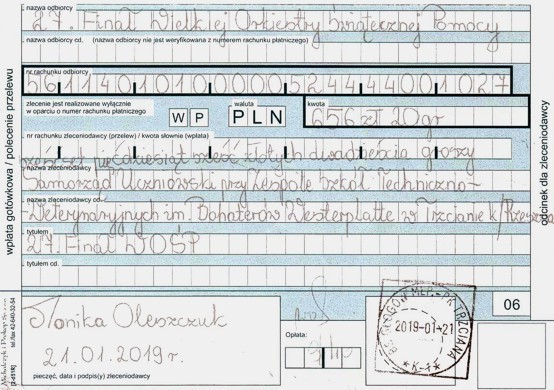 nazwa odbiorcy
27. Finał Wielkiej Orkiestry Świątecznej Pomocy
nazwa odbiorcy cd. (nazwa odbiorcy nie jest weryfikowana z numerem rachunku płatniczego)
nr rachunku odbiorcy
56114010100000524444001027
zlecenie jest realizowane wyłącznie
w oparciu o numer rachunku płatniczego
W P
waluta
PLN
kwota
656 zł 20gr
nr rachunku zleceniodawcy (przelew) / kwota słownie (wpłata)
sześćset pięćdziesiąt sześć złotych dwadzieścia groszy
nazwa zleceniodawcy
Samorząd Uczniowski przy Zespole Szkół Techniczno-
nazwa zleceniodawcy cd.
-Weterynaryjnych im. Bohaterów Westerplatte w Trzcianie k/Rzeszowa
tytułem
27. Finał WOŚP
tytułem cd.
Monika Oleszczuk
21.01.2019r.
pieczęć, data i podpis(y) zleceniodawcy
Opłata:
06
2019-01-21
TRZCIANA
wpłata gotówkowa / polecenie przelewu
odcinek dla zleceniodawcy